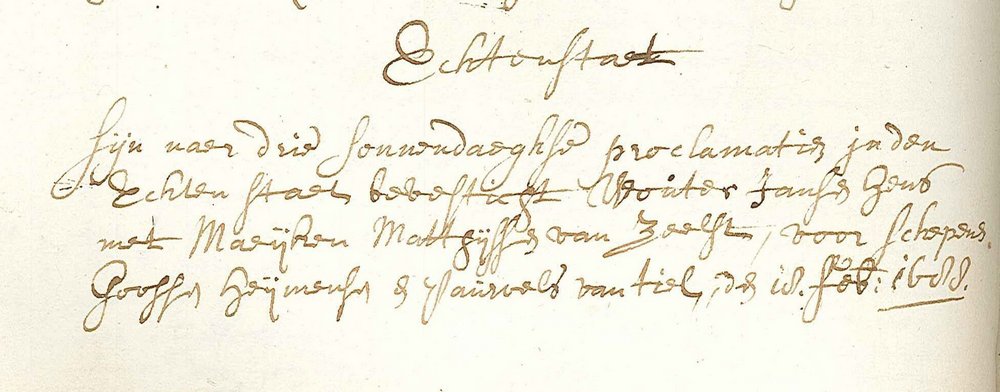 Echtenstaet
Sijn naer drie sonnendaeghse proclamatien in den
Echten staet bevesticht Wouter Jansen Gens
met Maeijken Matthijssen van Zeelst, voor schepens.
Goossen Heijmensen en Pauwels van Tiel, den 18. Feb: 1688.